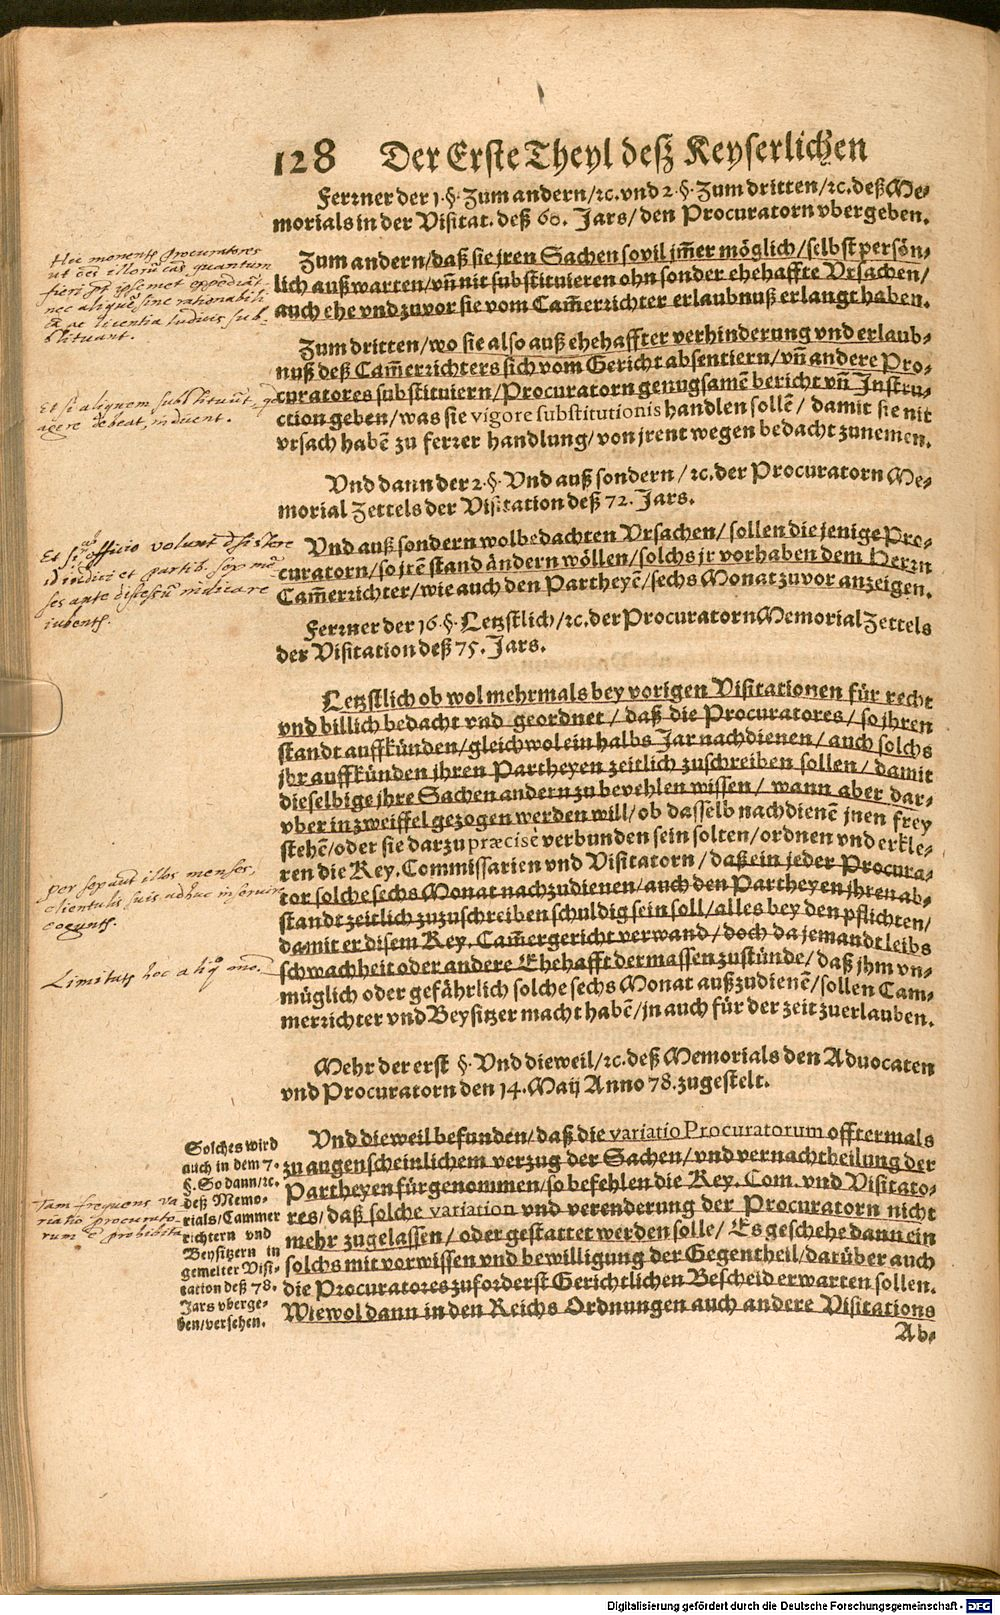 128 Der Erste Theyl deß Keyserlichen
Ferrner der 1. §. Zum andern/ꝛc. vnd 2. §. Zum dritten/ꝛc. deß Me⸗
morials in der Visitat. deß 60. Jars/ den Procuratorn vbergeben.
Hic monentʳ procuratores
fieri pt ipsemet expediāt
nec aliquē sine rationabili
cā ac licentia Iudicis sub-
stituant.
Zum andern/daß sie jren Sachen sovil jm̃er möglich/selbst persön⸗
lich außwarten/vñ nit substituieren ohn sonder ehehaffte Vrsachen/
auch ehe vnd zuvor sie vom Cam̃errichter erlaubnuß erlangt haben.
Et si aliquem substituūt, qd
agere debeat, induent.
Zum dritten/wo sie also auß ehehaffter verhinderung vnd erlaub⸗
nuß deß Cam̃errichters sich vom Gericht absentiern/vñ andere Pro⸗
curatores substituiern/Procuratorn genugsamē bericht vñ Instru⸗
ction geben/was sie vigore substitutionis handlen sollē/ damit sie nit
vrsach habē zu ferrer handlung/von jrent wegen bedacht zunemen.
Vnd dann der 2. §. Vnd auß sondern/ꝛc. der Procuratorn Me⸗
morial Zettels der Visitation deß 72. Jars.
Et si ab officio volunt desistere
id iudici et partib. sex mē-
ses ante discessū indicare
iubentʳ.
Vnd auß sondern wolbedachten Vrsachen/ sollen die jenige Pro⸗
curatorn/so jrē stand ändern wöllen/solchs jr vorhaben dem Herrn
Cam̃errichter/wie auch den Partheyē/sechs Monat zuvor anzeigen.
Ferrner der 16. §. Letzstlich/ꝛc. der Procuratorn Memorial Zettels
der Visitation deß 75. Jars.
Letzstlich ob wol mehrmals bey vorigen Visitationen für recht
vnd billich bedacht vnd geordnet/ daß die Procuratores/ so jhren
standt auffkünden/gleichwol ein halbs Jar nachdienen/ auch solchs
jhr auffkünden jhren Partheyen zeitlich zuschreiben sollen/ damit
dieselbige jhre Sachen andern zu bevehlen wissen/ wann aber dar⸗
vber in zweiffel gezogen werden will/ob dasselb nachdienē jnen frey
stehē/oder sie darzu præcisè verbunden sein solten/ordnen vnd erkle⸗
ren die Key. Commissarien vnd Visitatorn/ daß ein jeder Procura⸗
tor solche sechs Monat nachzudienen/auch den Partheyen jhren ab⸗
standt zeitlich zuzuschreiben schuldig sein soll/alles bey den pflichten/
damit er disem Key. Cam̃ergericht verwand/doch da jemandt leibs
schwachheit oder andere Ehehafft dermassen zustünde/ daß jhm vn⸗
müglich oder gefährlich solche sechs Monat außzudienē/sollen Cam⸗
merrichter vnd Beysitzer macht habē/jn auch für der zeit zuerlauben.
per sex aut illos menses,
clientulis suis adhuc inservire
coguntʳ.
Limitatʳ hoc aliqº mō.
Mehr der erst §. Vnd dieweil/ꝛc. deß Memorials den Advocaten
vnd Procuratorn den 14. Maij Anno 78. zugestelt.
Vnd dieweil befunden/daß die variatio Procuratorum offtermals
zu augenscheinlichem verzug der Sachen/vnd vernachtheilung der
Partheyen fürgenommen/so befehlen die Key. Com. vnd Visitato⸗
res/daß solche variation vnd verenderung der Procuratorn nicht
mehr zugelassen/oder gestattet werden solle/ Es geschehe dann ein
solchs mit vorwissen vnd bewilligung der Gegentheil/darüber auch
die Procuratores zuforderst Gerichtlichen Bescheid erwarten sollen.
Wiewol dann in den Reichs Ordnungen auch andere Visitations
Ab⸗
Solches wird
auch in dem 7.
§. So dann/ꝛc.
deß Memo⸗
rials/Cammer
richtern vnd
Beysitzern in
gemelter Visi⸗
tation deß 78.
Jars vberge⸗
ben/versehen.
Tam frequens va
riatio procurato-
rum ē prohibita
Digitalisierung gefördert durch die Deutsche Forschungsgemeinschaft - DFG